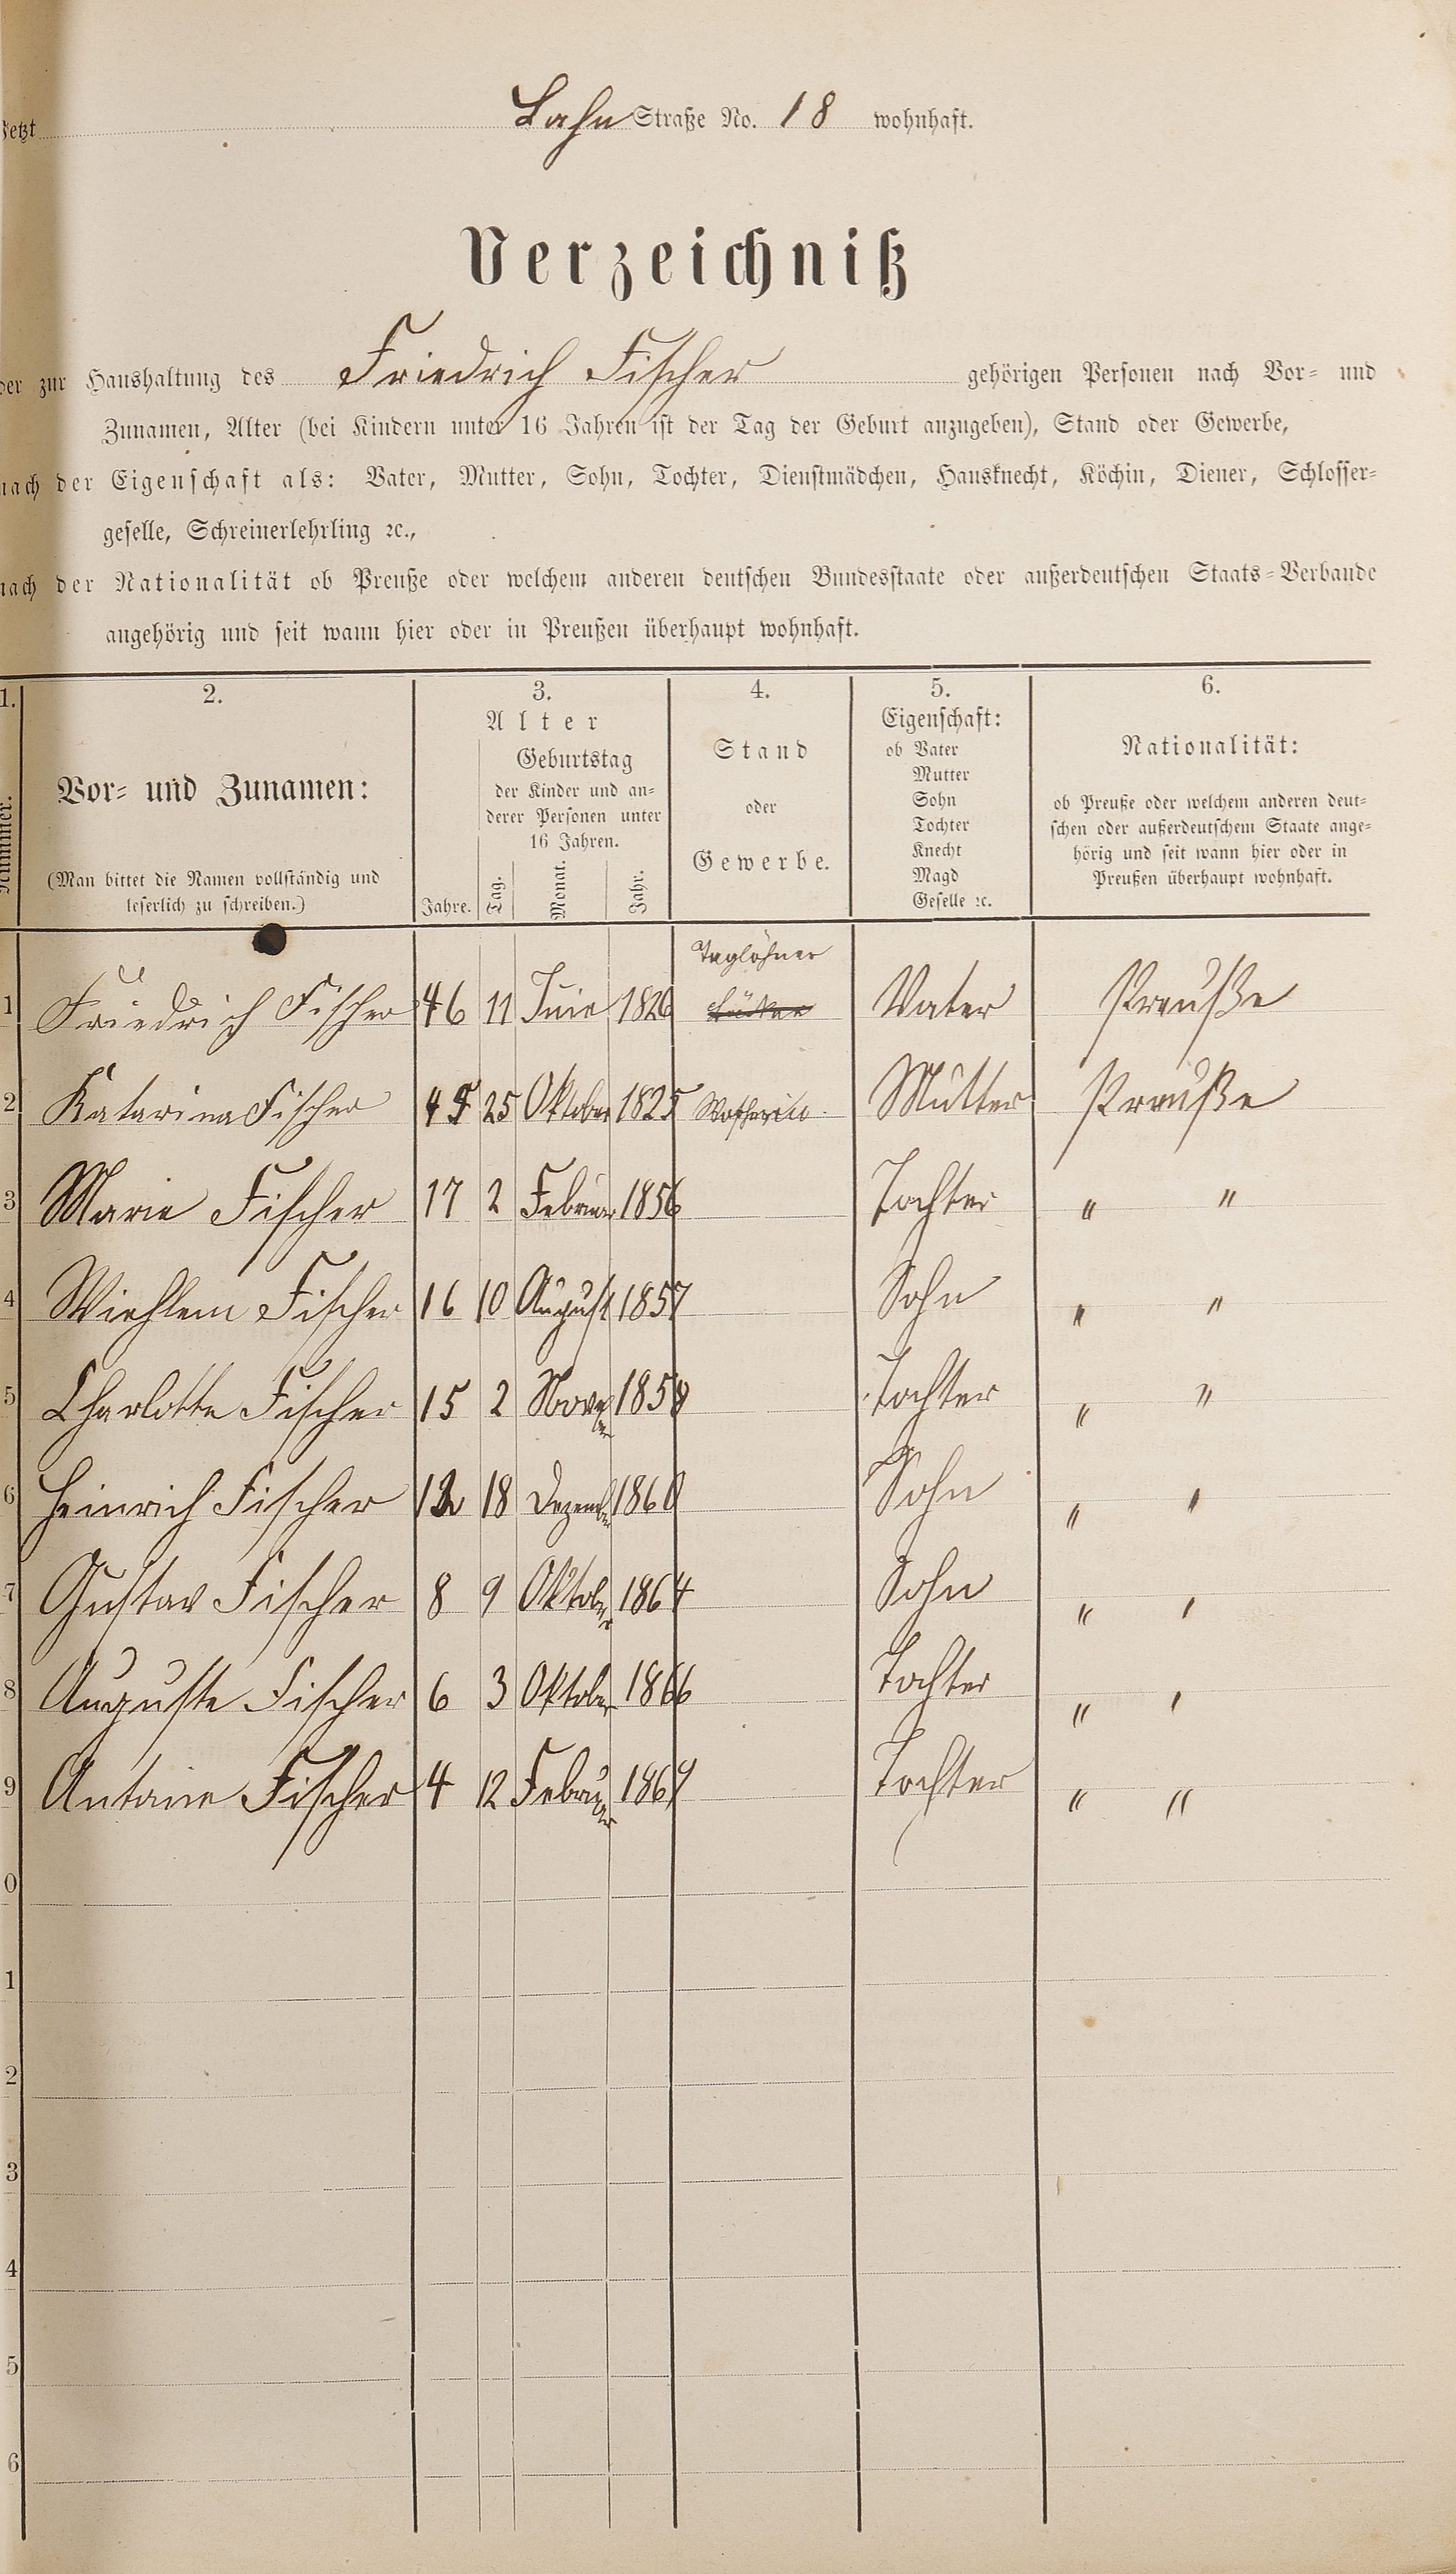 Jetzt Lahn Straße No. 18 wohnhaft.
Verzeichniß
der zur Haushaltung des Friedrich Fischer gehörigen Personen nach Vor- und
Zunamen, Alter (bei Kindern unter 16 Jahren ist der Tag der Geburt anzugeben), Stand oder Gewerbe,
nach der Eigenschaft als: Vater, Mutter, Sohn, Tochter, Dienstmädchen, Hausknecht, Köchin, Diener, Schlosser-
geselle, Schreinerlehrling ꝛc.,
nach der Nationalität ob Preuße oder welchem anderen deutschen Bundesstaate oder außerdeutschen Staats-Verbande
angehörig und seit wann hier oder in Preußen überhaupt wohnhaft.
1.
Nummer.
2.
Vor- und Zunamen:
(Man bittet die Namen vollständig und
leserlich zu schreiben.)
3.
Alter
Geburtstag
der Kinder und an-
derer Personen unter
16 Jahren.
Jahre. Tag. Monat. Jahr.
4.
Stand
oder
Gewerbe.
5.
Eigenschaft:
ob Vater
Mutter
Sohn
Tochter
Knecht
Magd
Geselle ꝛc.
6.
Nationalität:
ob Preuße oder welchem anderen deut-
schen oder außerdeutschem Staate ange-
hörig und seit wann hier oder in
Preußen überhaupt wohnhaft.
Taglöhner
1 Friedrich Fischer 46 11 Juni 1826 Vater Preuße
2 Katarina Fischer 45 25 Oktober 1825 Mutter Preuße
3 Marie Fischer 17 2 Februar 1856 Tochter " "
4 Wiehlem Fischer 16 10 August 1857 Sohn " "
5 Charlotte Fischer 15 2 1858 Tochter " "
6 Heinrich Fischer 12 18 Dezember 1860 Sohn " "
7 Gustav Fischer 8 9 Oktober 1864 Sohn " "
8 Auguste Fischer 6 3 Oktober 1866 Tochter " "
9 Antonie Fischer 4 12 Februar 1869 Tochter " "
0
1
2
3
4
5
6